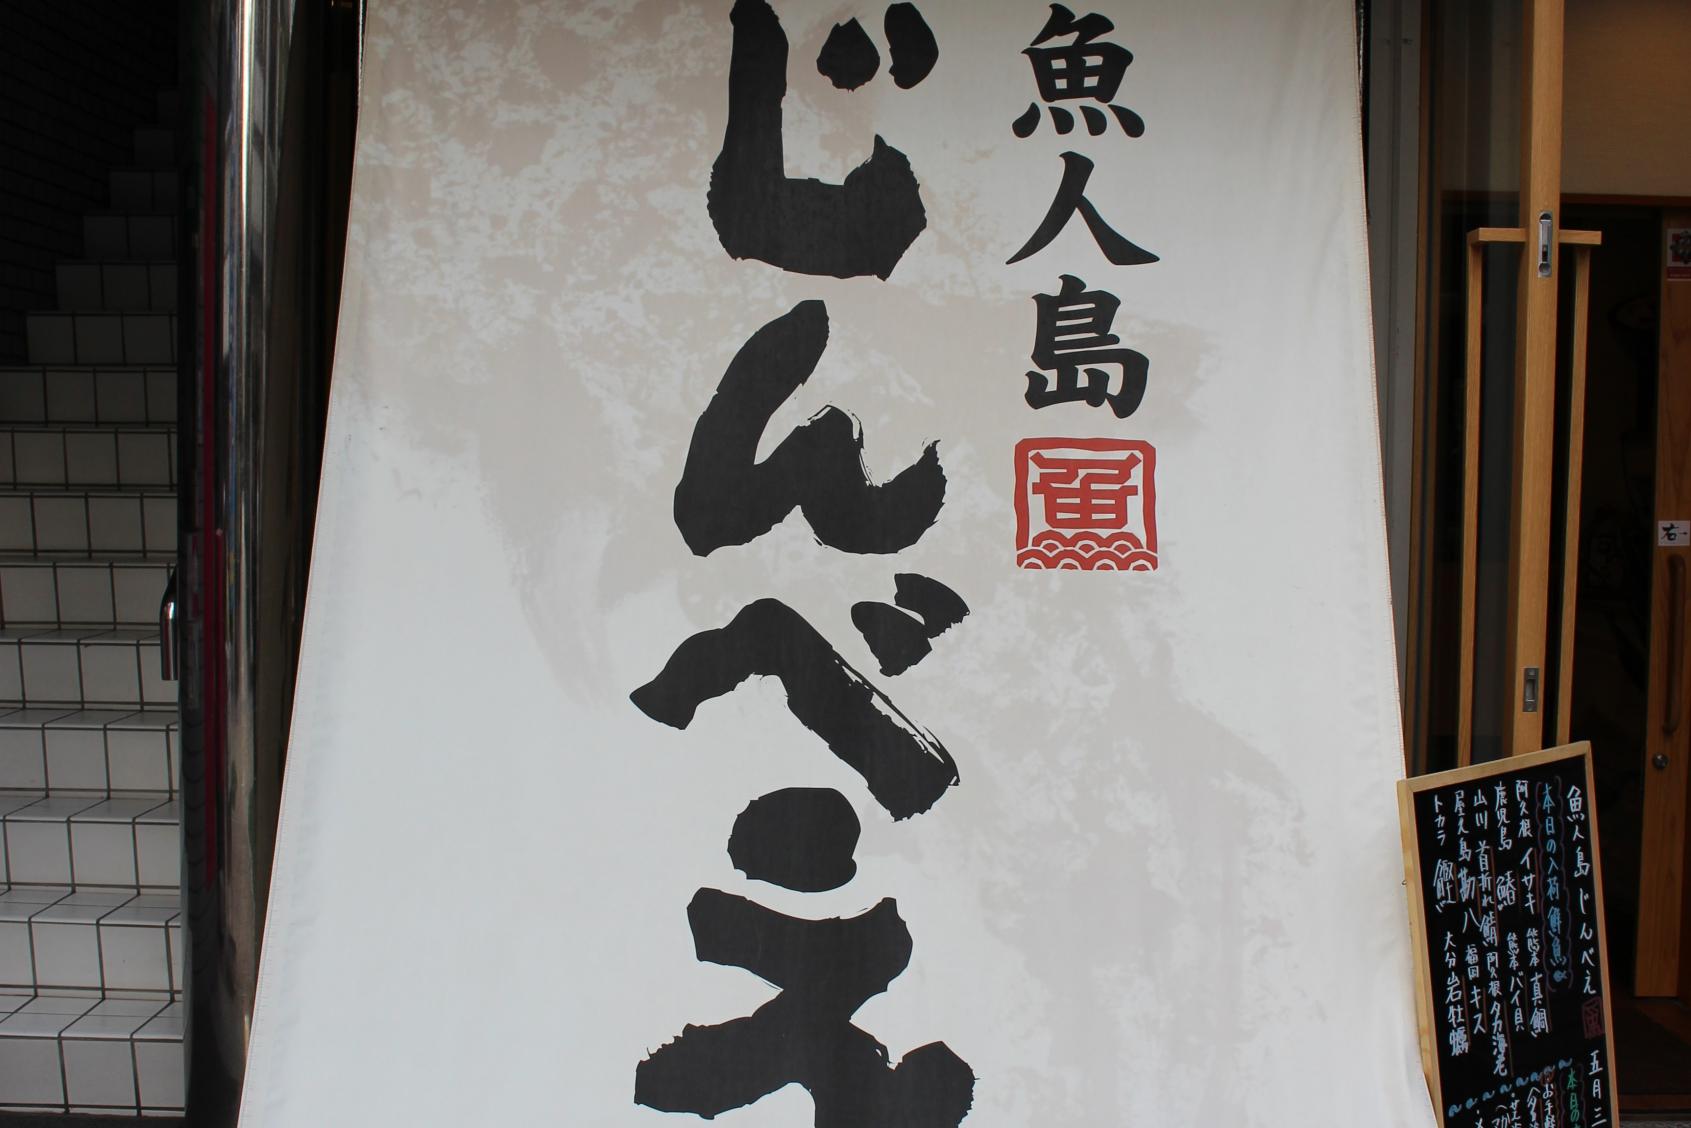 魚人島
魚
じんべえ
右
魚人島 じんべえ
五月三
本日の入荷鮮魚
阿久根 イサキ 熊本 真鯛
鹿児島 鰆 熊本 バイ貝
山川 首折れ鯖 阿久根 タカ海老
屋久島 勘八 福岡 キス
トカラ 鰹 大分 岩牡蠣
本日の
お手軽